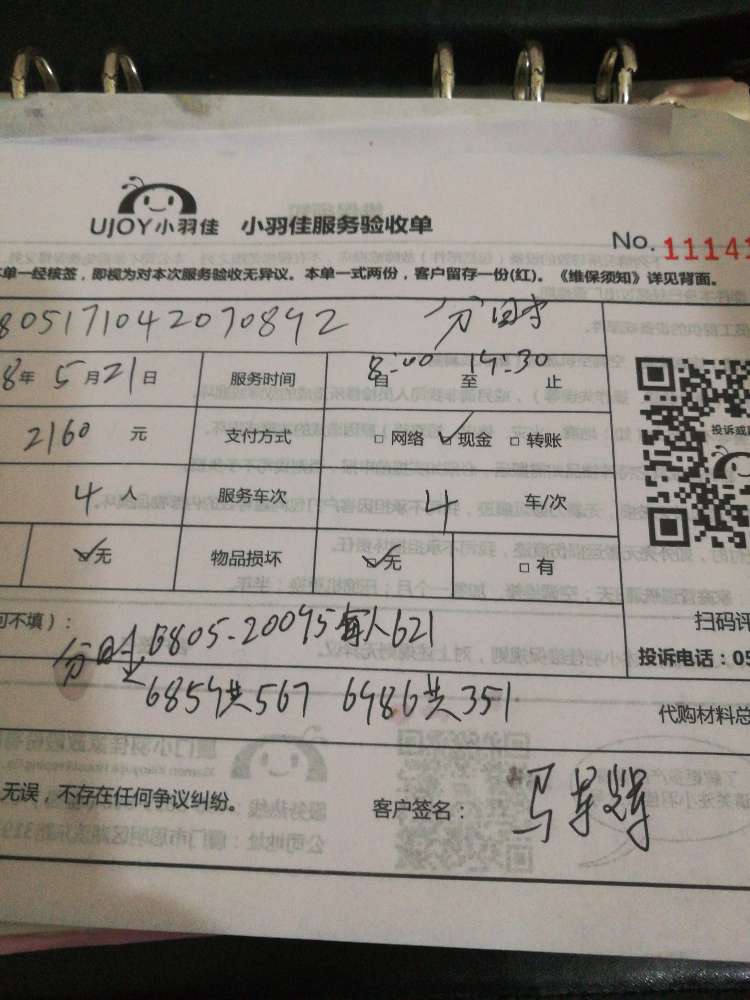 UJOY小羽佳 小羽佳服务验收单
No. 11141
本单一经核签，即视为对本次服务验收无异议。本单一式两份，客户留存一份(红)。《维保须知》详见背面。
805171042070892
8年5月21日 服务时间 8:00 自 至 14:30 止
2160 元 支付方式 □网络 ☑现金 □转账
投诉或
4人 服务车次 4 车/次
☑无 物品损坏 ☑无 □有
可不填)：
扫码评
6805-20095每人621
投诉电话：05
6859共567 6986共351
代购材料总
无误，不存在任何争议纠纷。 客户签名：